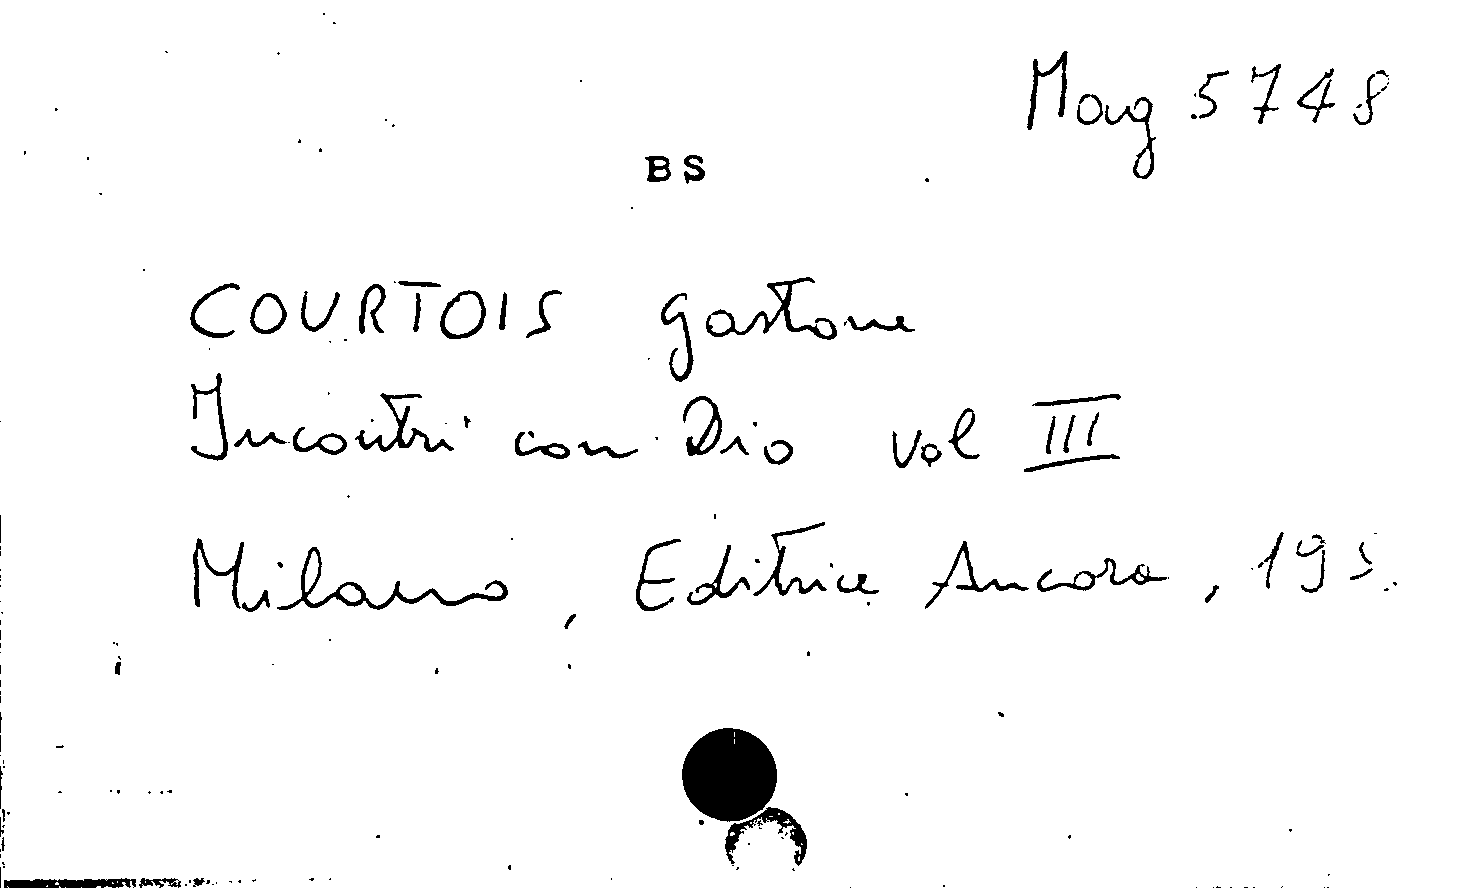 Mag 5748
BS
COURTOIS Gastone
Incontri con Dio vol III
Milano, Editrice Ancora, 195.